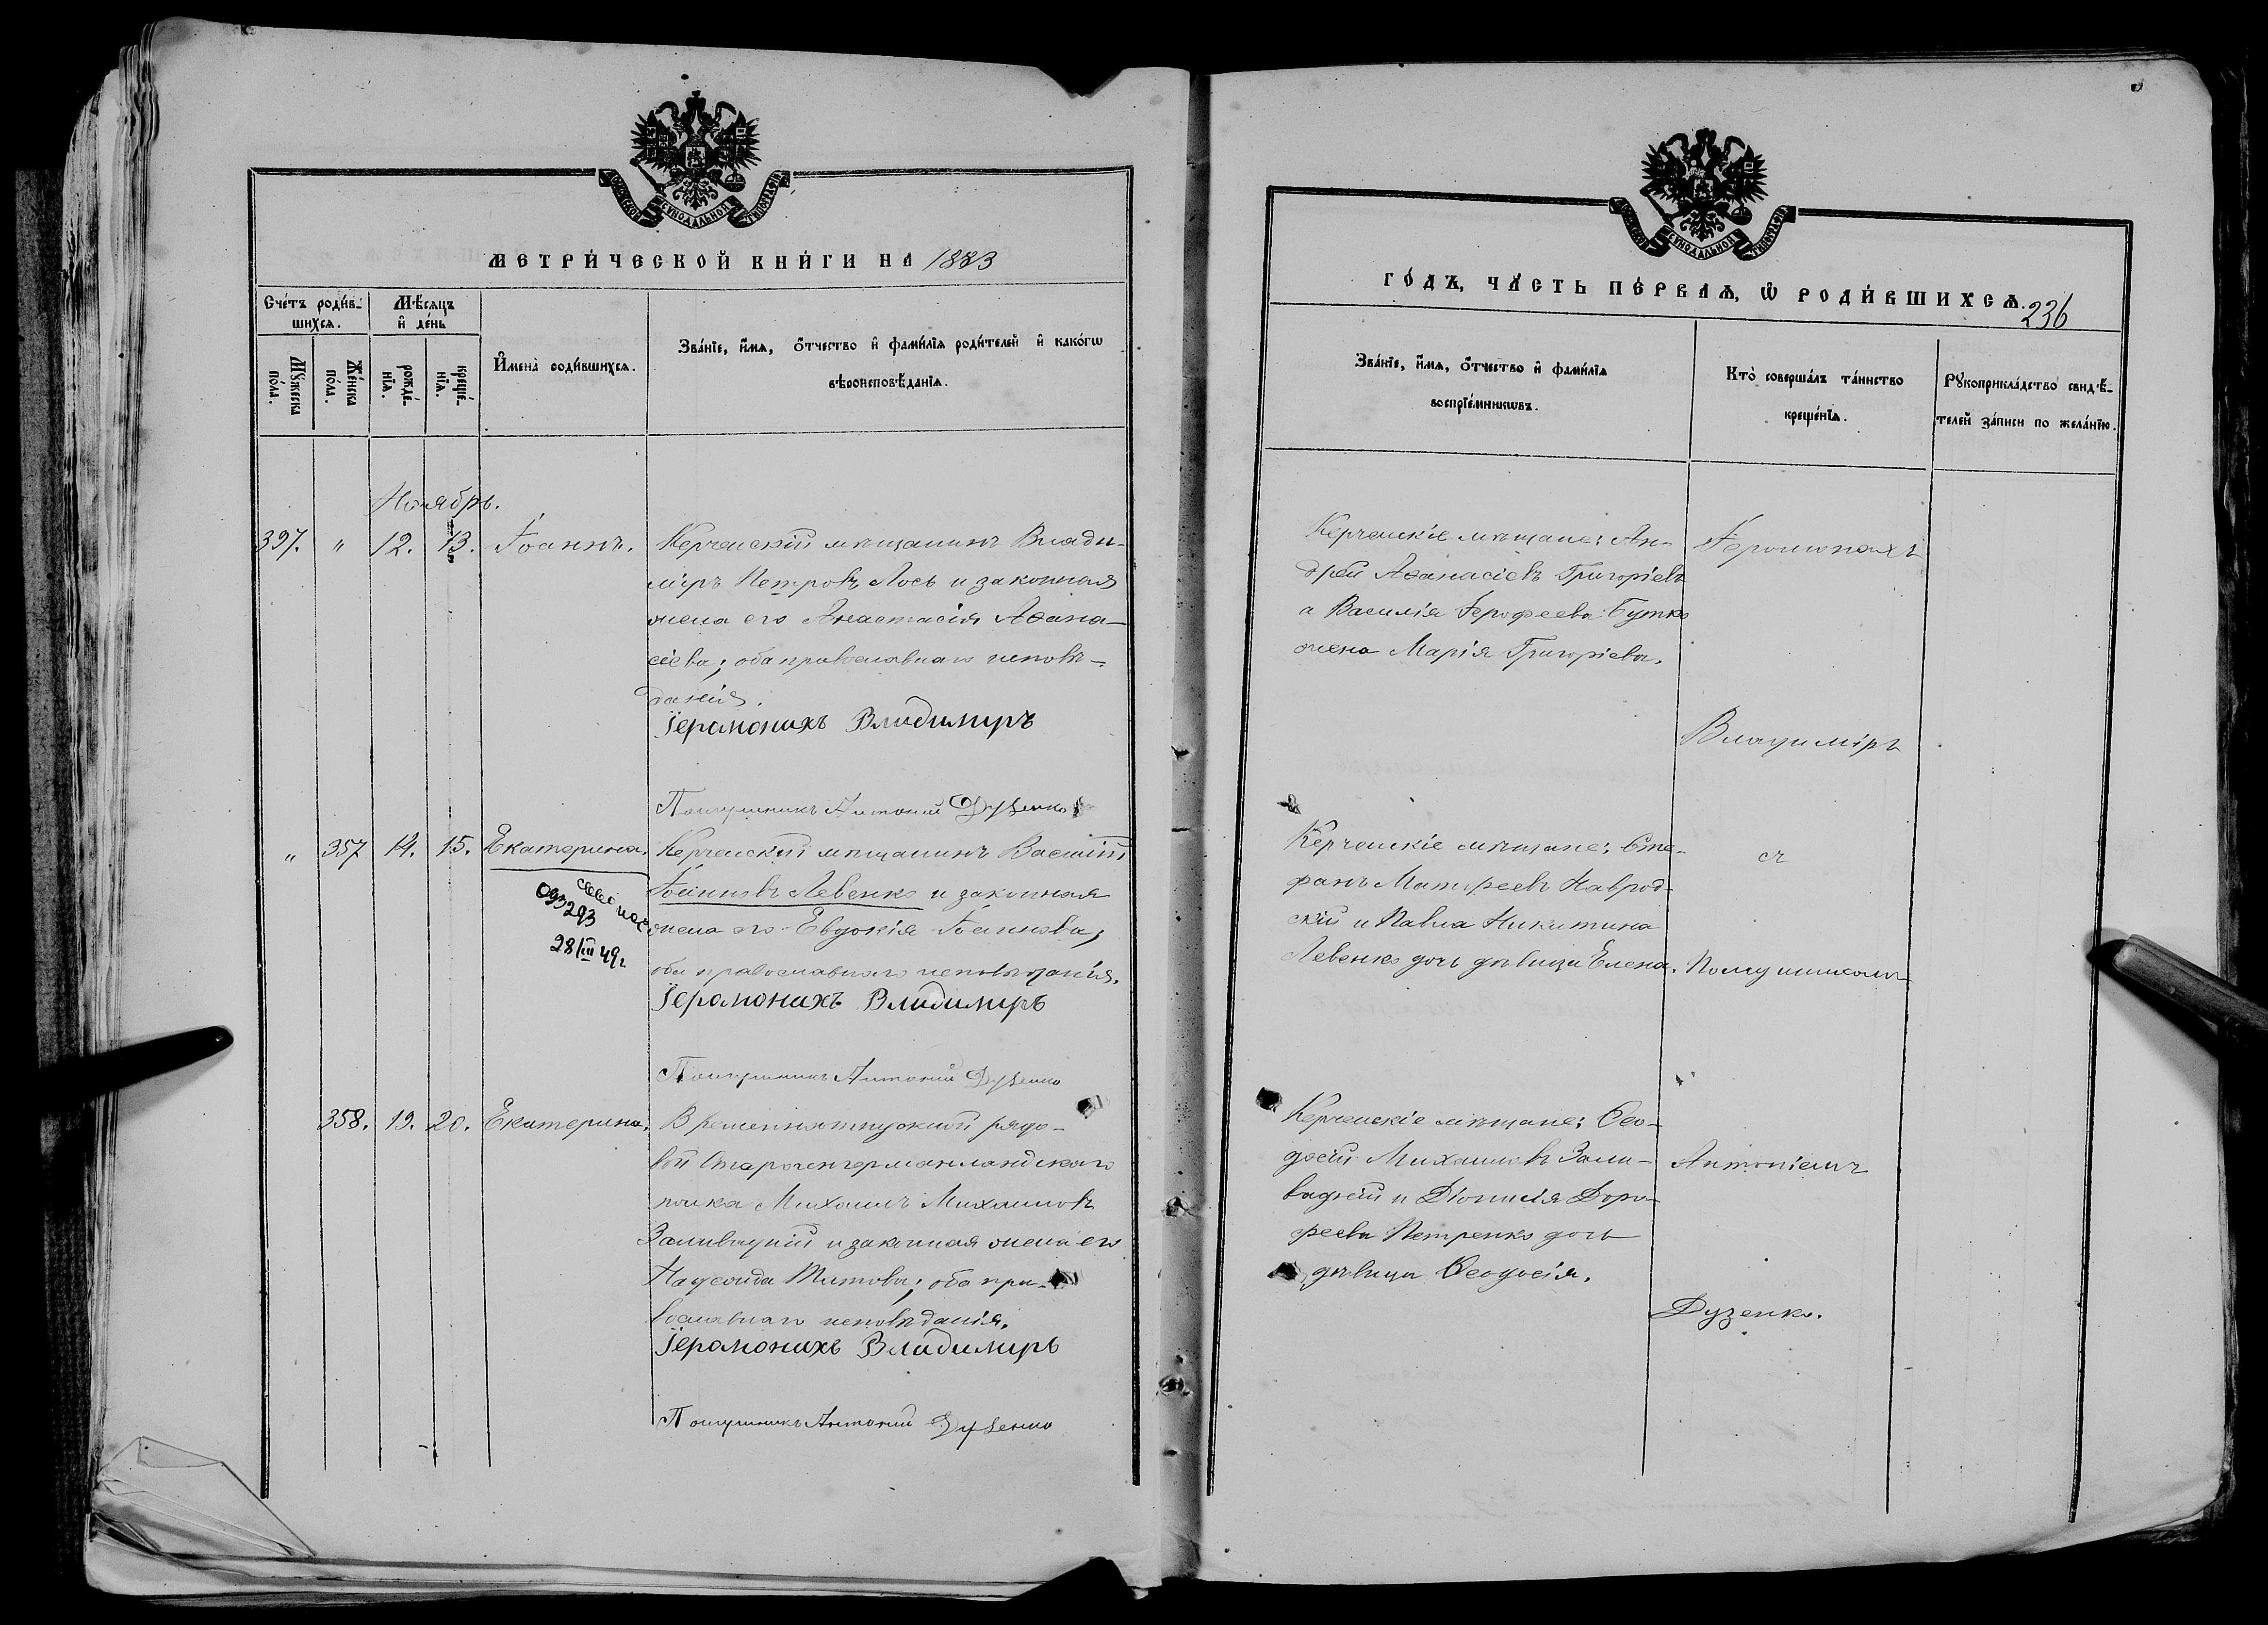 СѴНОДАЛЬНОЙ
МЕТРИ́ЧЕСКОЙ КНИ́ГИ НА 1883
Сче́тъ роди́в-
шихсѧ.
Мѣ́сяцъ
и҆ де́нь
Мꙋ́жеска
по́ла.
Же́нска
по́ла.
рожде́-
нїѧ.
креще́-
нїѧ.
И҆мена̀ роди́вшихсѧ.
Зва́нїе, и҆́мѧ, ѻ҆́тчество и҆ фами́лїѧ роди́телей и҆ како́гѡ
вѣроисповѣ́данїѧ.
Ноябрь.
397. " 12. 13. Іоаннъ.
Керченскій мѣщанинъ Влади-
міръ Петровъ Лось и законная
жена его Анастасія Аѳана-
сіева; оба православнаго исповѣ-
данія.
Іеромонахъ Владимиръ
Послушникъ Антоній Дузенко
" 357 14. 15. Екатерина.
Керченскій мѣщанинъ Василій
Іоанновъ Левенко и законная
жена его Евдокія Іоаннова;
оба православнаго исповѣданія.
293
28/III 49г
Іеромонахъ Владимиръ
Послушникъ Антоній Дузенко
358. 19. 20. Екатерина.
Временноотпускной рядо-
вой Староингерманландскаго
полка Михаилъ Михаиловъ
Заливадній и законная жена его
Надежда Титова; оба пра-
вославнаго исповѣданія.
Іеромонахъ Владимиръ
Послушникъ Антоній Дузенко
СѴНОДАЛЬНОЙ
ГО́ДЪ, ЧА́СТЬ ПЕ́РВАѦ, Ѽ РОДИ́ВШИХСѦ.
236
Зва́нїе, и҆́мѧ, ѻ҆́тчество и҆ фами́лїѧ
воспрїе́мникѡвъ.
Кто̀ соверша́лъ та́инство
креще́нїѧ.
Рꙋкоприкла́дство свидѣ́-
телей за́писи по жела́нїю.
Керченскіе мѣщане: Ан-
дрей Аѳанасіевъ Григоріевъ
а Василія Іерофеева Бутко
жена Марія Григоріева.
Іеромонахъ
Владиміръ
Керченскіе мѣщане: Сте-
фанъ Матфеевъ Наврод-
скій и Павла Никитина
Левенко дочь дѣвица Елена.
съ
Послушникомъ
Керченскіе мѣщане: Ѳео-
досій Михаиловъ Зали-
вадній и Діонисія Доро-
феева Петренко дочь
дѣвица Ѳеодосія.
Антоніемъ
Дузенко.